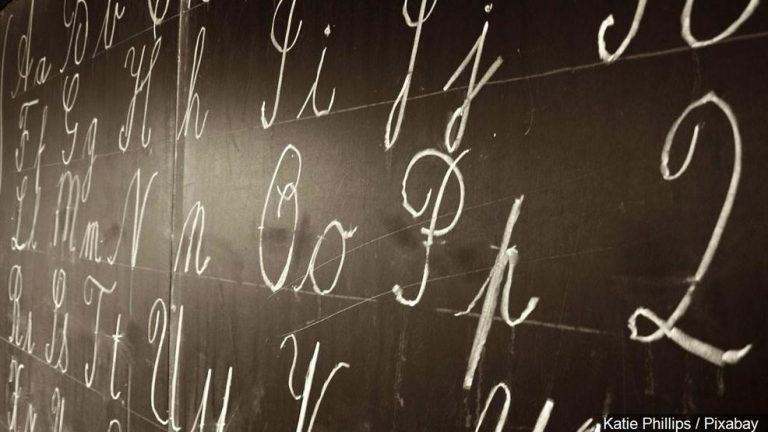 A a B b
F f G g H h I i J j
L l M m N n O o P p Q
R r S s T t U u V v
X x Y
Katie Phillips / Pixabay